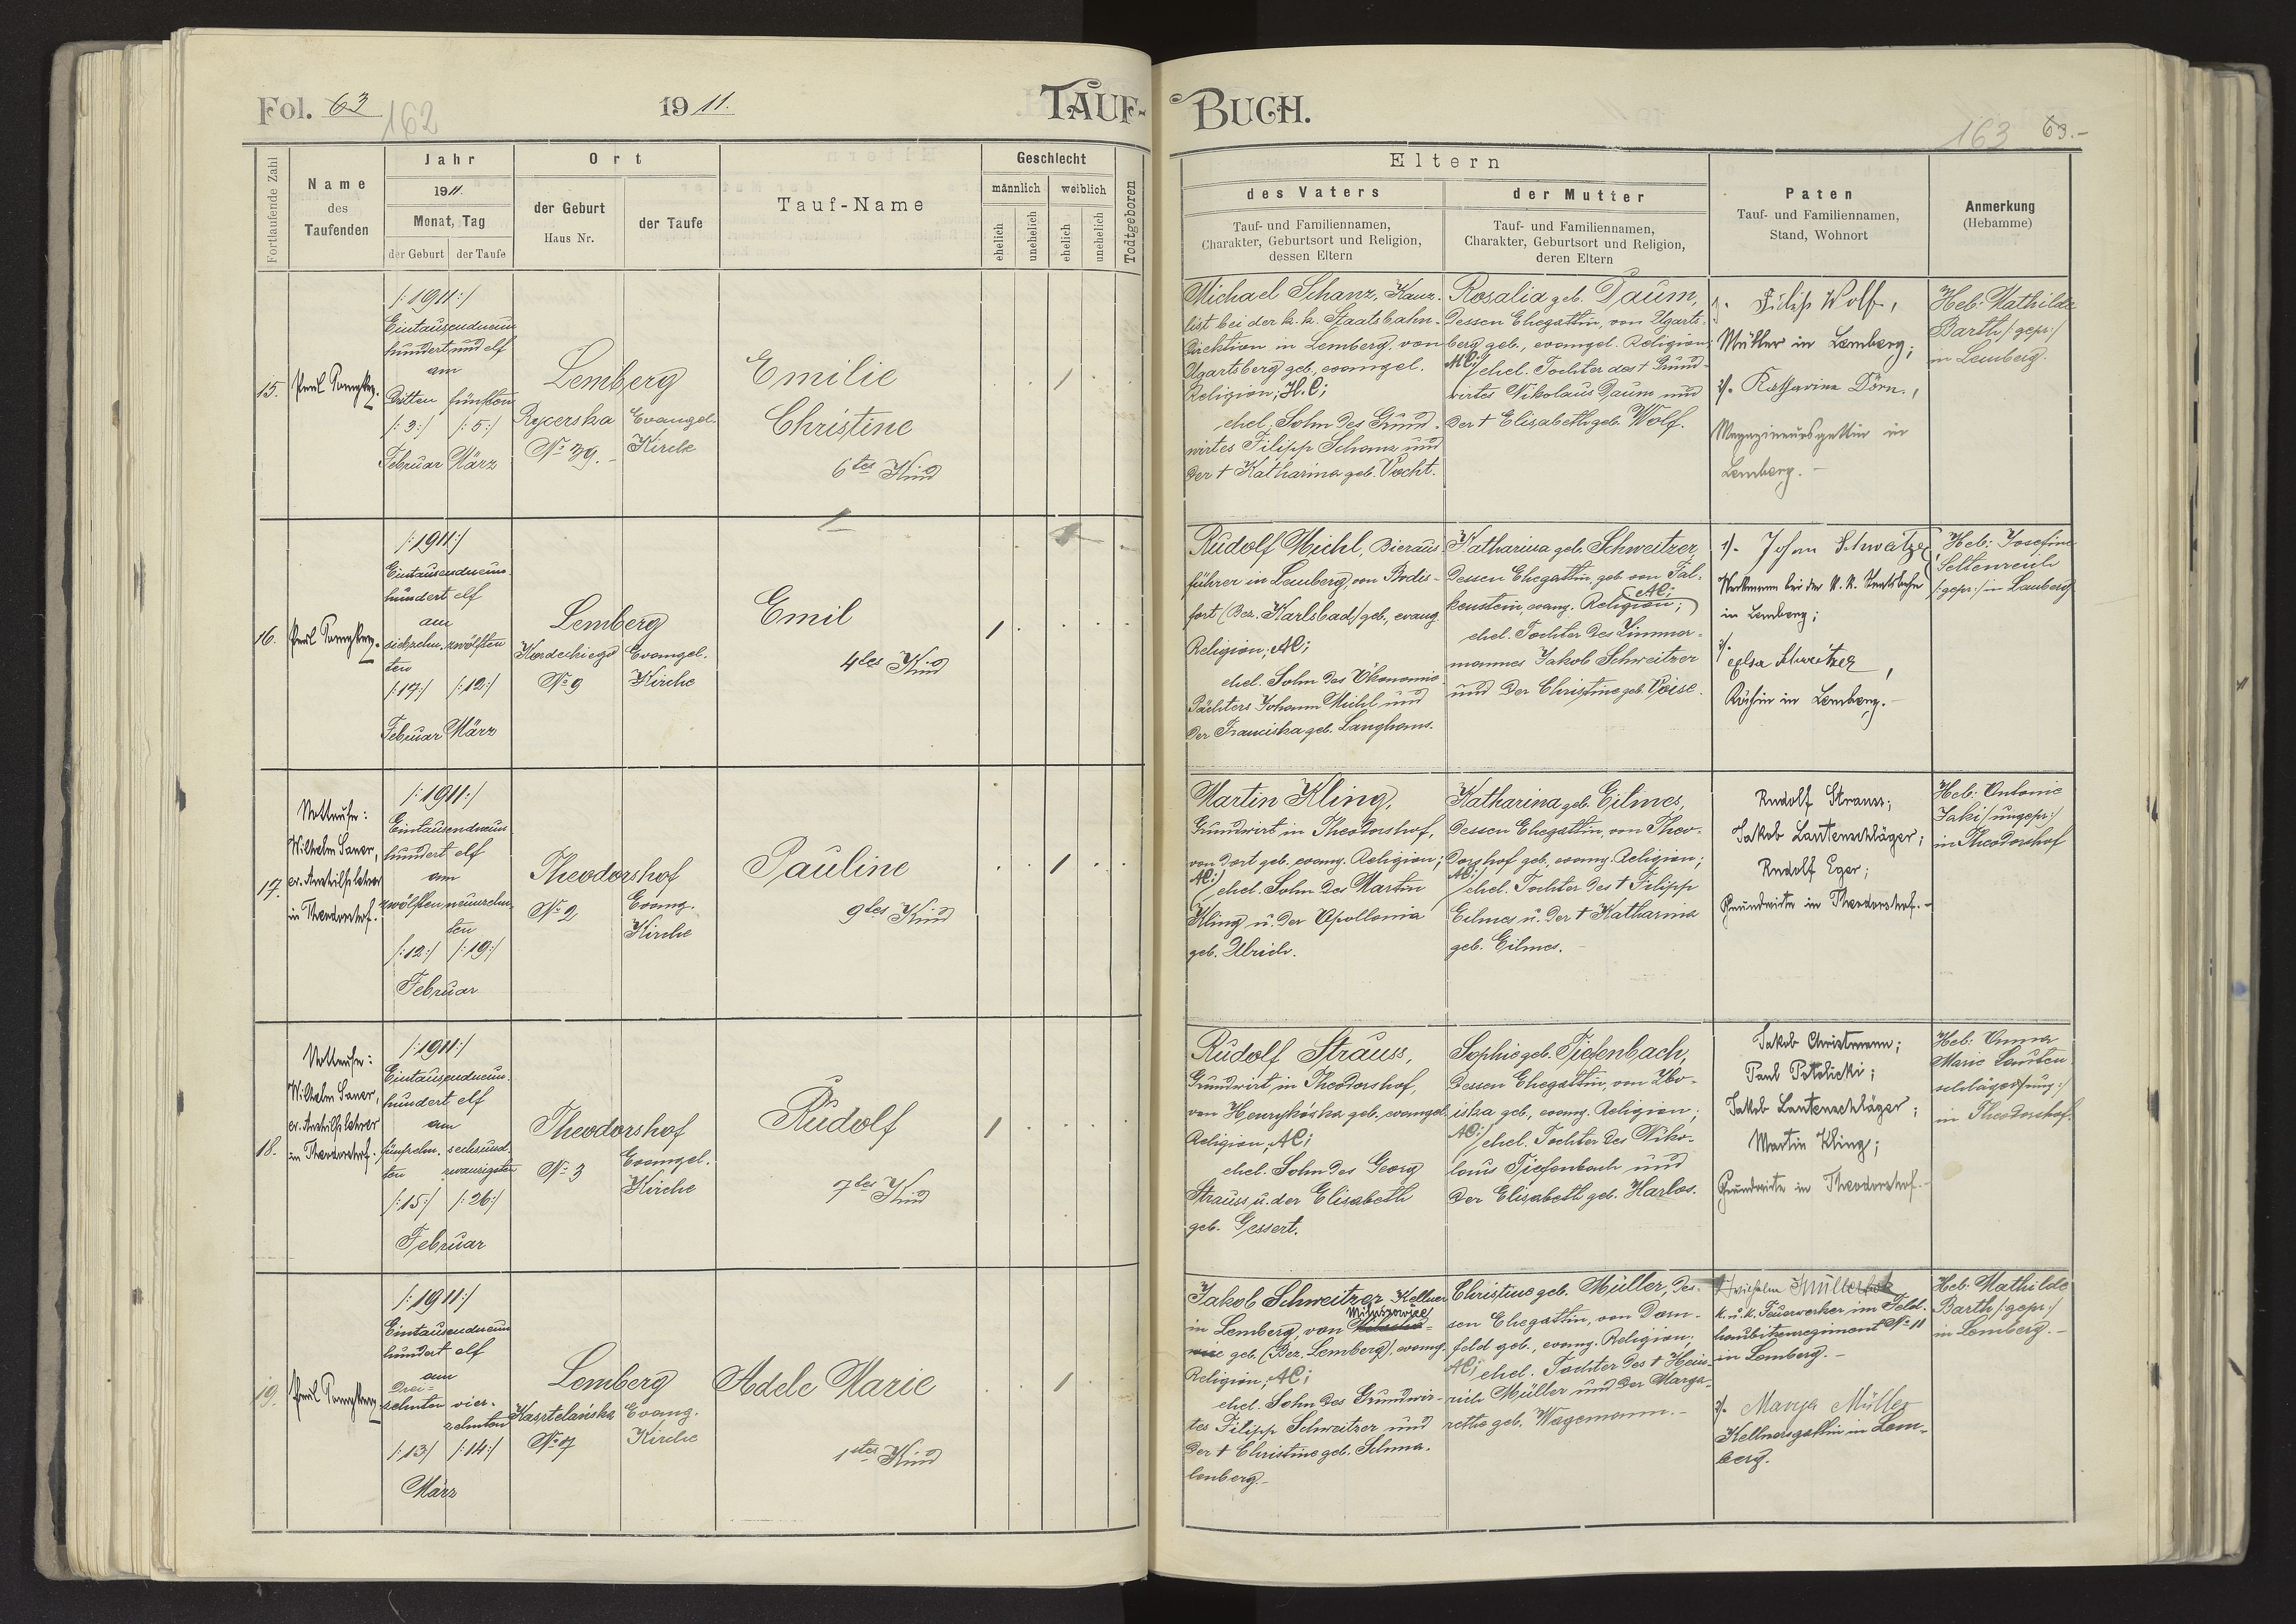 Fol. 63
162
1911.
TAUF-
Fortlaufende Zahl
Name
des
Taufenden
Jahr
1911.
Monat, Tag
der Geburt
der Taufe
Ort
der Geburt
Haus Nr.
der Taufe
Tauf-Name
Geschlecht
männlich
weiblich
ehelich
unehelich
ehelich
unehelich
Todtgeboren
15.
/:1911:/
Eintausendneun
hundert und elf
am
Dritten fünften
/:3:/ /:5:/
Februar März
Lemberg
Rycerska
No 39.
Evangel.
Kirche
Emilie
Christine
6tes Kind
1
16.
/:1911:/
Eintausendneun-
hundert elf
am
siebzehn- zwölften
ten
/:17:/ /:12:/
Februar März
Lemberg
Kordeckiego
No 9
Evangel.
Kirche
Emil
4tes Kind
1
17.
Nottaufe:
Wilhelm Sauer,
ev. Aushilfslehrer
in Theodorshof.
/:1911:/
Eintausendneun-
hundert elf
am
zwölften neunzehn-
ten
/:12:/ /:19:/
Februar
Theodorshof
No 2
Evang.
Kirche
Pauline
9tes Kind
1
18.
Nottaufe:
Wilhelm Sauer,
ev. Aushilfslehrer
in Theodorshof.
/:1911:/
Eintausendneun-
hundert elf
am
fünfzehn- sechsund-
ten zwanzigsten
/:15:/ /:26:/
Februar
Theodorshof
No 3
Evangel.
Kirche
Rudolf
7tes Kind
1
19.
/:1911:/
Eintausendneun
hundert elf
am
Drei-
zehnten vier-
zehnten
/:13/ /:14:/
März
Lemberg
Kasztelańska
No 7
Evang.
Kirche
Adele Marie
1stes Kind
1
BUCH.
163
63.-
Eltern
des Vaters
Tauf- und Familiennamen,
Charakter, Geburtsort und Religion,
dessen Eltern
der Mutter
Tauf- und Familiennamen,
Charakter, Geburtsort und Religion,
deren Eltern
Paten
Tauf- und Familiennamen,
Stand, Wohnort
Anmerkung
(Hebamme)
Michael Schanz, Kanz-
list bei der k. k. Staatsbahn-
Direktion in Lemberg, von
Ugartsberg geb., evangel.
Religion, H.C;
ehel. Sohn des Grund-
wirtes Filipp Schanz und
der † Katharina geb. Vocht.
Rosalia geb. Daum,
dessen Ehegattin, von Ugarts-
berg geb., evangel. Religion;
ehel. Tochter des † Grund-
wirtes Nikolaus Daum und
der † Elisabeth geb. Wolf.
1. Filip Wolf,
Müller in Lemberg;
2. Katharina Dörn,
Magazineursgattin in
Lemberg.-
Heb: Mathilde
Barth /:gepr:/
in Lemberg.
Rudolf Michl, Bieraus-
führer in Lemberg, von
fort (Bez. Karlsbad) geb., evang.
Religion, AC;
ehel. Sohn des Ökonomie-
Pächters Johann Michl und
der Franciska geb. Langhans.
Katharina geb. Schweitzer,
dessen Ehegattin, geb. von Fal-
kenstein, evang. Religion; AC;
ehel. Tochter des Zimmer-
mannes Jakob Schweitzer
und der Christine geb. Weise.
1. Johan Schweitzer,
Werkmann bei der k. k. Staatsbahn
in Lemberg;
2.
Elsa Schweitzer,
Köchin in Lemberg.-
Heb: Josefine
Seltenreich
/:gepr:/ in Lemberg
Martin Kling,
Grundwirt in Theodorshof,
von dort geb. evang. Religion;
AC;/ ehel. Sohn des Martin
Kling u. der Apollonia
geb. Ulrich.
Katharina geb. Eilmes,
dessen Ehegattin, von Theo-
dorshof geb., evang. Religion;
AC;/ ehel. Tochter des † Filipp
Eilmes u. der † Katharina
geb. Eilmes.
Rudolf Strauss;
Jakob Lautenschläger;
Rudolf Eger;
Grundwirte in Theodorshof.-
Heb: Antonie
Jaki /:ungepr:/
in Theodorshof
Rudolf Strauss,
Grundwirt in Theodorshof,
von Henrykówka geb., evangel.
Religion, AC;
ehel. Sohn des Georg
Strauss u. der Elisabeth
geb. Gessert.
Sophie geb. Tiefenbach,
dessen Ehegattin, von Zbo-
iska geb., evang. Religion;
AC;/ ehel. Tochter des Niko-
laus Tiefenbach und
der Elisabeth geb. Harlos.
Jakob Christmann;
Paul Potolicki;
Jakob Lautenschläger;
Martin Kling;
Grundwirte in Theodorshof.-
Heb: Anna
Marie Lauten-
schläger /:ung:/
in Theodorshof.
Jakob Schweitzer, Kellner
in Lemberg, von Miłuszowice
geb. (Bez. Lemberg), evang.
Religion, AC;
ehel. Sohn des Grundwir-
tes Filipp Schweitzer und
der † Christine geb. Schma-
lenberg.-
Christine geb. Müller, des-
sen Ehegattin, von Dorn-
feld geb., evang. Religion;
AC; ehel. Tochter des † Hein-
rich Müller und der Marga-
rethe geb. Wagemann.-
1. Wilhelm
k. u. k. Feuerwerker im Feld-
haubitzenregiment No 11
in Lemberg.-
2. Marya Müller
Kellnersgattin in Lem-
berg.
Heb: Mathilde
Barth /:gepr:/
in Lemberg.-